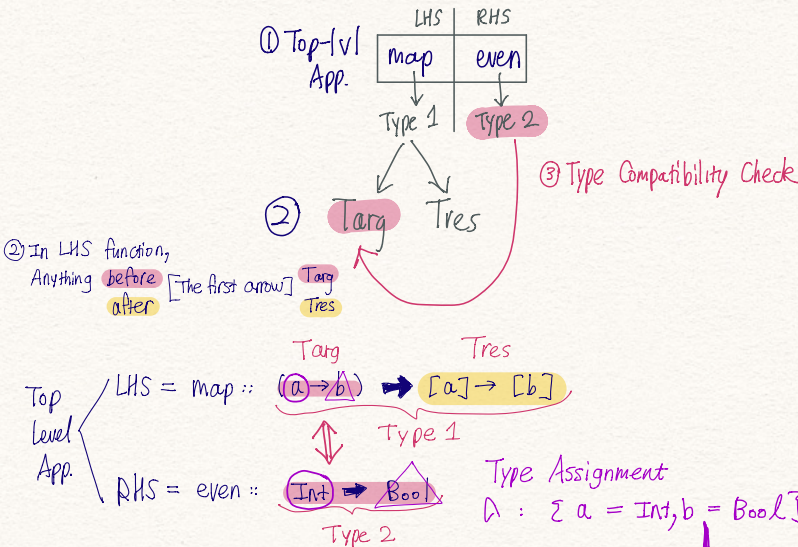 LHS RHS
① Top-lvl App.
map even
Type 1 Type 2
③ Type Compatibility Check
② Targ Tres
② In LHS function,
Anything before [The first arrow] Targ
after Tres
Targ Tres
Top Level App.
LHS = map :: (a → b) → [a] → [b]
Type 1
RHS = even :: Int → Bool
Type 2
Type Assignment
: { a = Int, b = Bool }